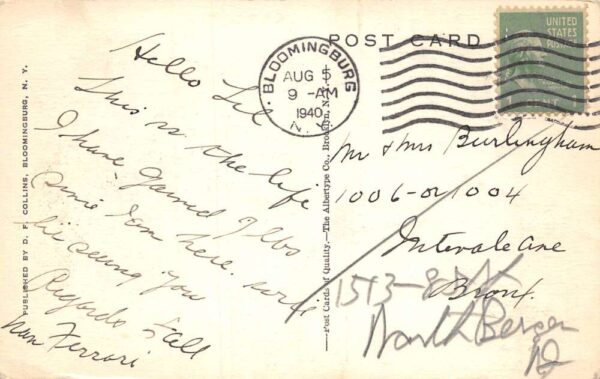 Hello Lil
This is the life
I have gained 7 lbs
since I am here. will
be seeing you
Regards to all
Nan Ferrari
PUBLISHED BY D. F. COLLINS, BLOOMINGBURG, N. Y.
Post Cards of Quality.—The Albertype Co., Brooklyn, N. Y.
POST CARD
BLOOMINGBURG
AUG 5
9 -AM
1940
N.Y.
UNITED
STATES
POSTAGE
Mr & Mrs Burlingham
1006-or 1004
Intervale Ave
Bronx.
1513-8
North Bergen